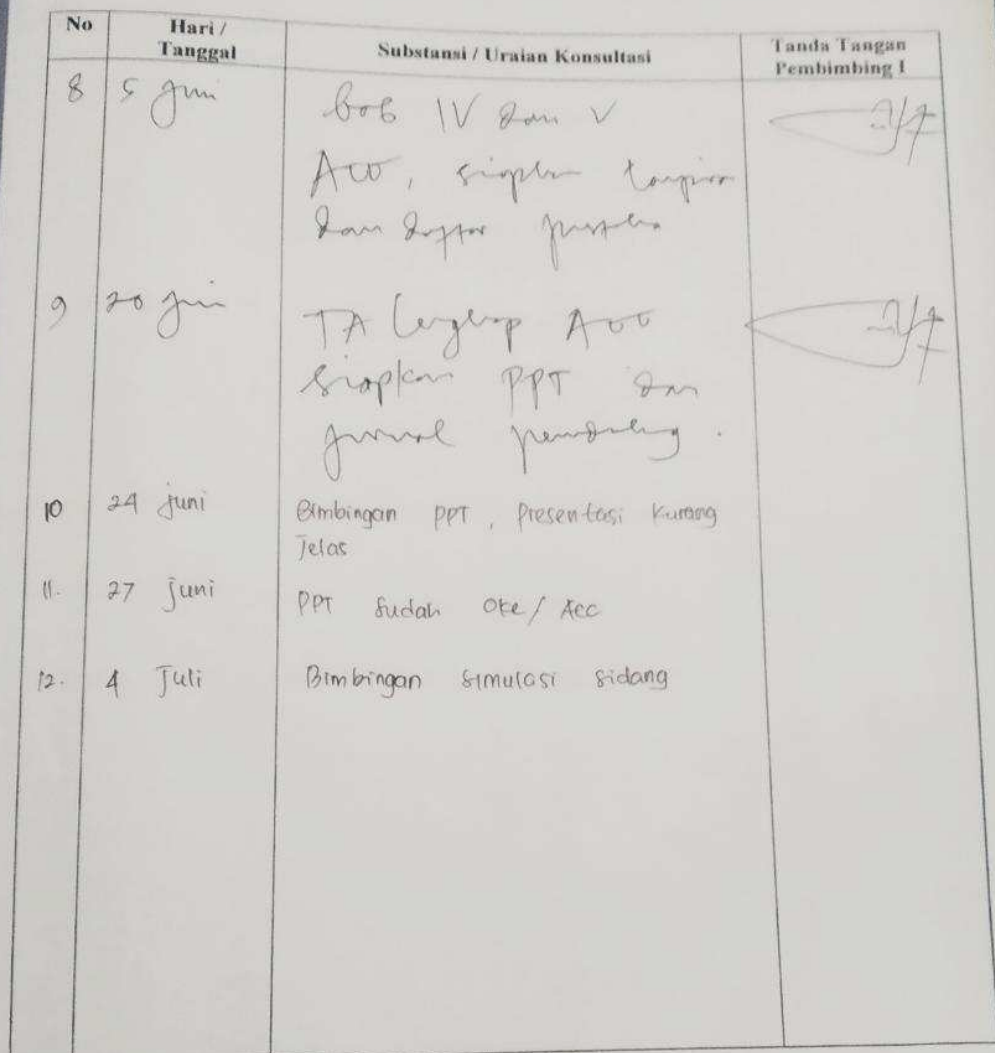 No Hari / Tanggal Substansi / Uraian Konsultasi Tanda Tangan Pembimbing I
8 5 Juni bab IV dan V
Acc, siapkan lampiran
dan daftar pustaka
9 20 Juni TA lengkap Acc
siapkan PPT dan
jurnal pendukung.
10 24 juni Bimbingan PPT, Presentasi Kurang
Jelas
11. 27 Juni PPT Sudah Oke / Acc
12. 4 Juli Bimbingan Simulasi Sidang